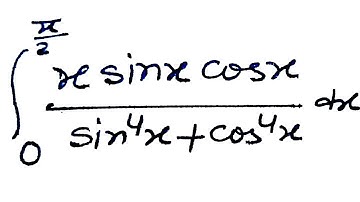 ∫₀^{π/2} (x sinx cosx)/(sin⁴x + cos⁴x) dx